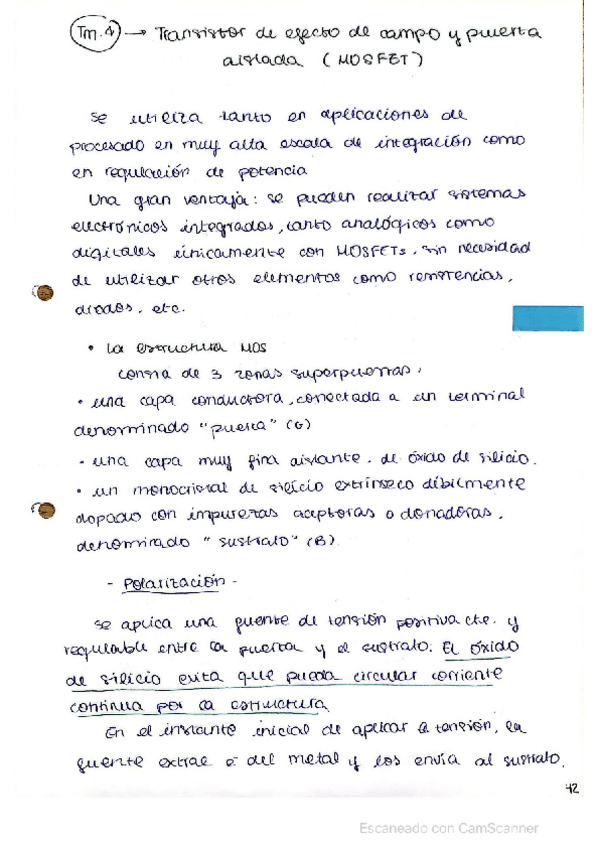 Tm.4 → Transistor de efecto de campo y puerta
aislada (MOSFET)
Se utiliza tanto en aplicaciones de
procesado en muy alta escala de integración como
en regulación de potencia
Una gran ventaja: se pueden realizar sistemas
electrónicos integrados, tanto analógicos como
digitales únicamente con MOSFETs, sin necesidad
de utilizar otros elementos como resistencias,
diodos, etc.
• La estructura MOS
Consta de 3 zonas superpuestas:
• una capa conductora, conectada a un terminal
denominado "puerta" (G)
- una capa muy fina aislante. de óxido de silicio.
• un monocristal de silicio extrínseco débilmente
dopado con impurezas aceptoras o donadoras,
denominado "sustrato" (B)
- Polarización -
Se aplica una fuente de tensión positiva cte. y
regulable entre la puerta y el sustrato. El óxido
de silicio evita que pueda circular corriente
continua por la estructura
En el instante inicial de aplicar la tensión, la
fuente extrae e- del metal y los envía al sustrato.
42
Escaneado con CamScanner